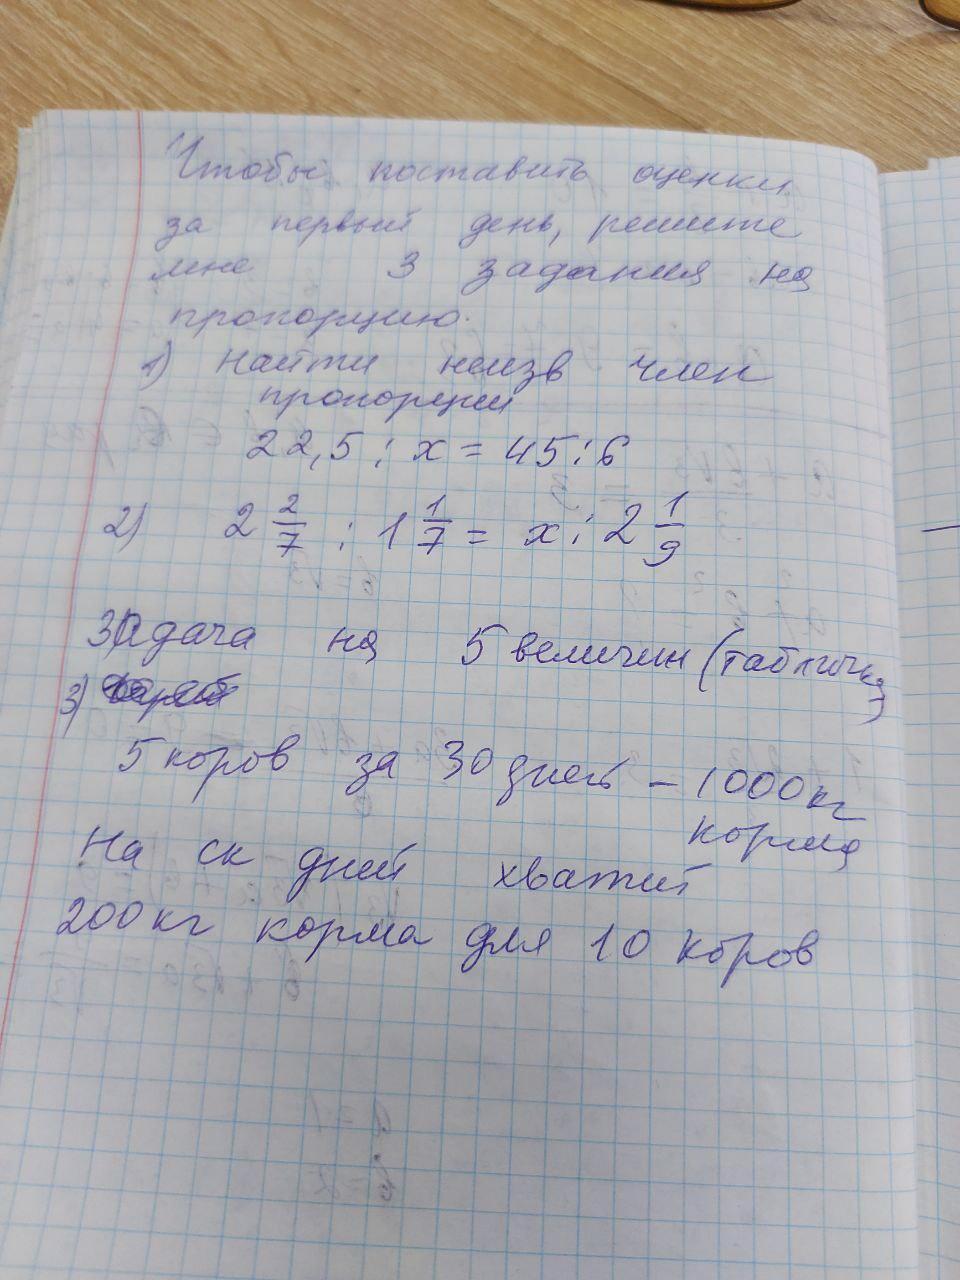 Чтобы поставить оценки
за первый день, решите
мне 3 задания на
пропорцию.
1) Найти неизв член
пропорции
22,5 : x = 45 : 6
2) 2 2/7 : 1 1/7 = x : 2 1/9
3) Задача на 5 величин (табличка)
3)
5 коров за 30 дней – 1000 кг
корма
На ск дней хватит
200 кг корма для 10 коров